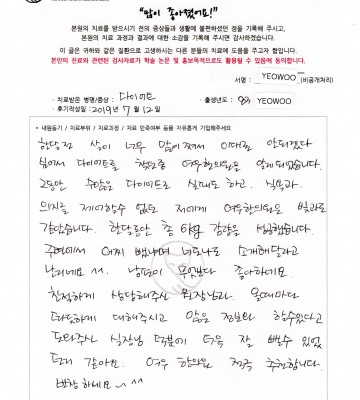 "많이 좋아졌어요!"
본원의 치료를 받으시기 전의 증상들과 생활에 불편하셨던 점을 기록해 주시고,
본원의 치료 과정과 결과에 대한 소감을 기록해 주시면 감사하겠습니다.
이 글은 귀하와 같은 질환으로 고생하시는 다른 분들의 치료에 도움을 주고자 합니다.
본인의 진료와 관련된 검사자료가 학술 논문 및 홍보목적으로도 활용될 수 있음에 동의합니다.
서명 : YEOWOO (비공개처리)
· 치료받은 병명/증상 : 다이어트
· 출생년도 : 83 YEOWOO
· 후기작성일 : 2019년 7월 12일
· 내원동기 / 치료부위 / 치료과정 / 치료 만족여부 등을 자유롭게 기입해주세요
한달전 살이 너무 많이 쪄서 이대로 안되겠다
싶어서 다이어트를 찾던중 여우한의원을 알게 되었습니다.
그동안 수많은 다이어트로 실패도 하고. 식욕과.
의지를 제어할수 없던 저에게 여우한의원은 빛과도
같았습니다. 한달동안 총 6kg 감량을 성공했습니다.
주변에서 어찌 뺐냐며 너도나도 소개해달라고
난리네요 ^^. 남편이 무엇보다 좋아하네요.
친절하게 상담해주신 원장님과. 올때마다
따뜻하게 대해주시고 많은 정보와 할수있다고
도와주신 실장님 덕분에 더욱 잘 뺄수 있었
던거 같아요. 여우 한의원 적극 추천합니다.
번창하세요~ ^^